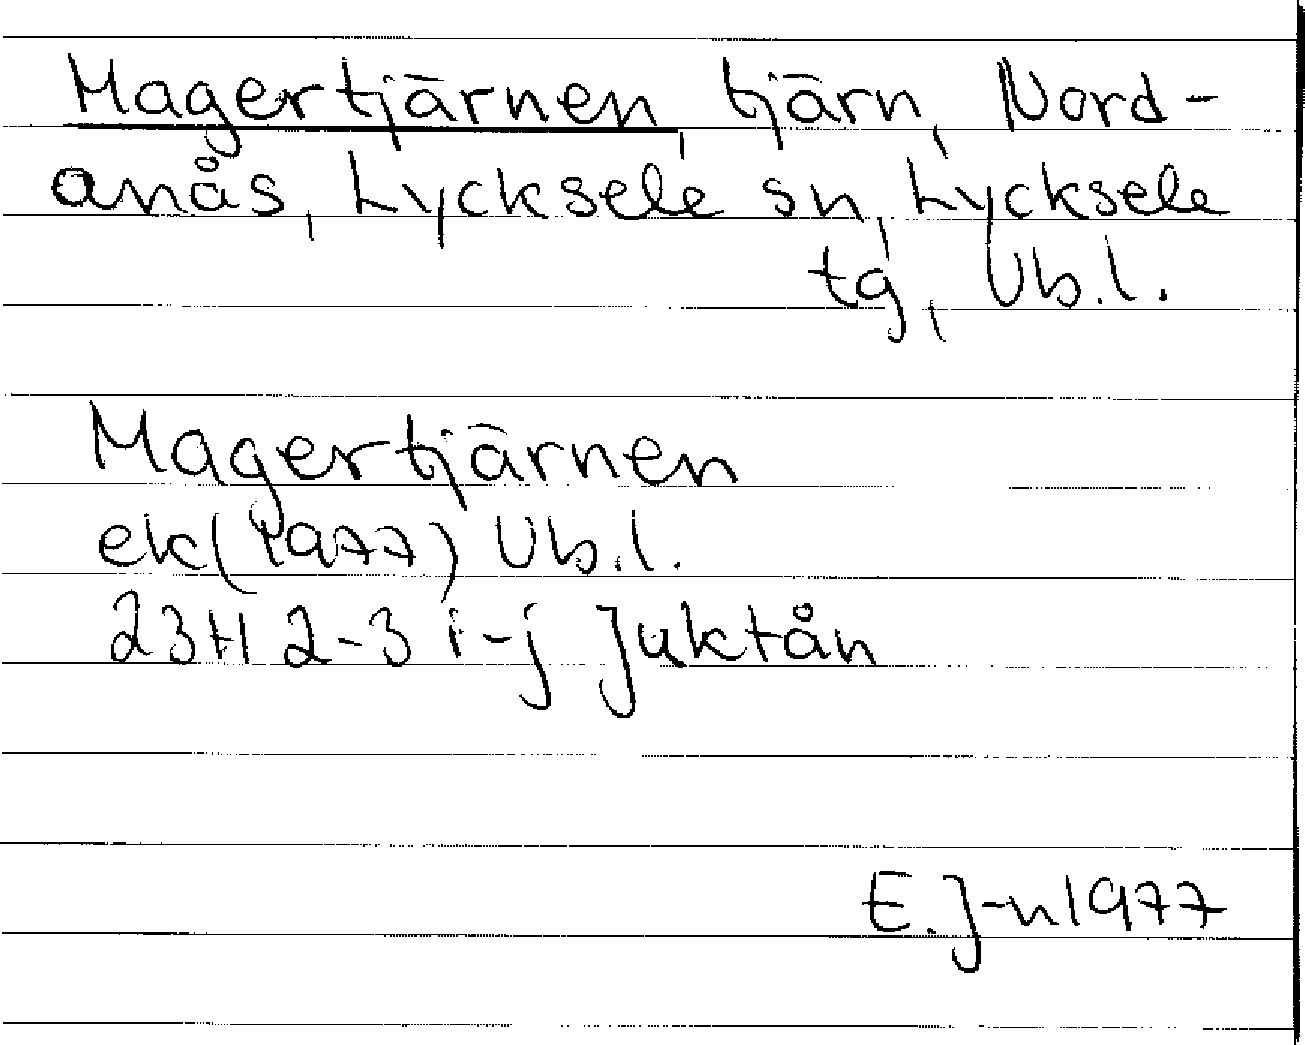 Magertjärnen, tjärn, Nord-
anås, Lycksele sn, Lycksele
tg, Vb.l.
Magertjärnen
ek(1977) Vb.l.
23H 2-3 i-j Juktån
E.J-n 1977